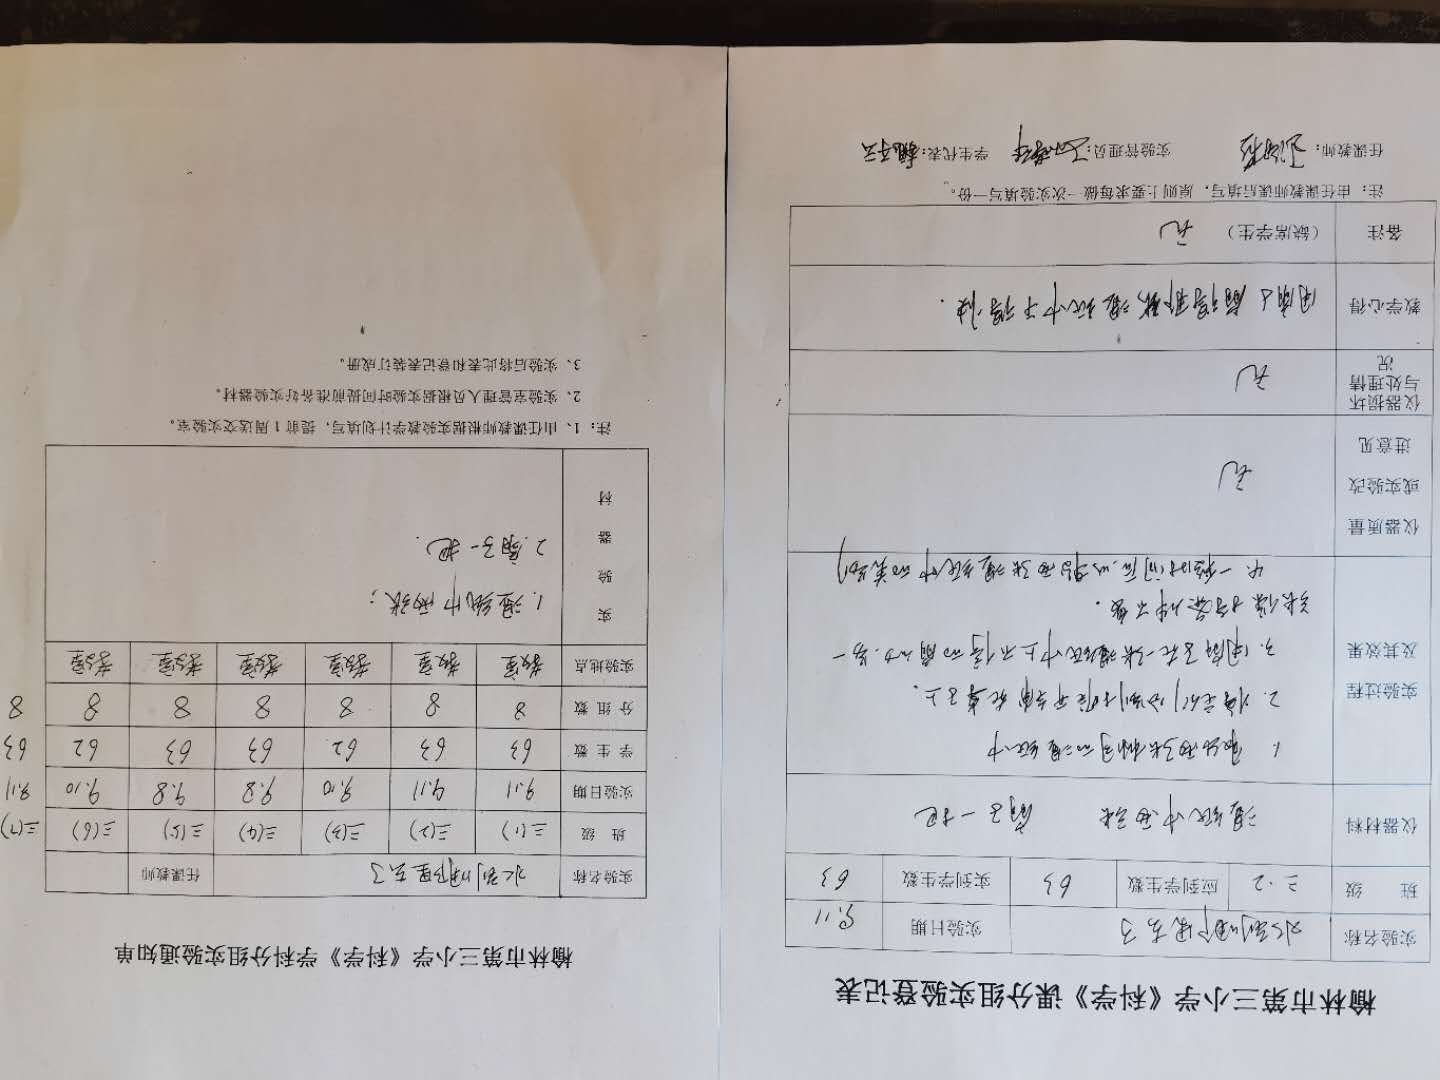 榆林市第三小学《科学》课分组实验登记表
实验名称 水到哪里去了 实验日期 9.11
班 级 三.2 应到学生数 63 实到学生数 63
仪器材料 湿纸巾两张 扇子一把
实验过程
及其效果
1. 取出两张相同的湿纸巾
2. 将它们分别摊开平铺在桌子上.
3. 用扇子在一张湿纸巾上不停的扇动.另一
张保持条件不变.
4. 一段时间后,
两张湿纸巾的
仪器质量
或实验改
进意见
无
仪器损坏
与处理情
况
无
教学心得 用扇子扇得那张湿纸巾干得快.
备注 (缺席学生) 无
注：由任课教师课后填写，原则上要求每做一次实验填写一份。
任课教师： 实验管理员： 学生代表：
榆林市第三小学《科学》学科分组实验通知单
实验名称 水到哪里去了 任课教师
班 级 三(1) 三(2) 三(3) 三(4) 三(5) 三(6) 三(7)
实验日期 9.11 9.11 9.10 9.8 9.8 9.10 9.11
学 生 数 63 63 62 63 63 62 63
分 组 数 8 8 8 8 8 8 8
实验地点 教室 教室 教室 教室 教室 教室
实
验
器
材
1. 湿纸巾两张；
2. 扇子一把.
注：1、由任课教师根据实验教学计划填写，提前1周送交实验室。
2、实验室管理人员根据实验时间提前准备好实验器材。
3、实验后将此表和登记表装订成册。